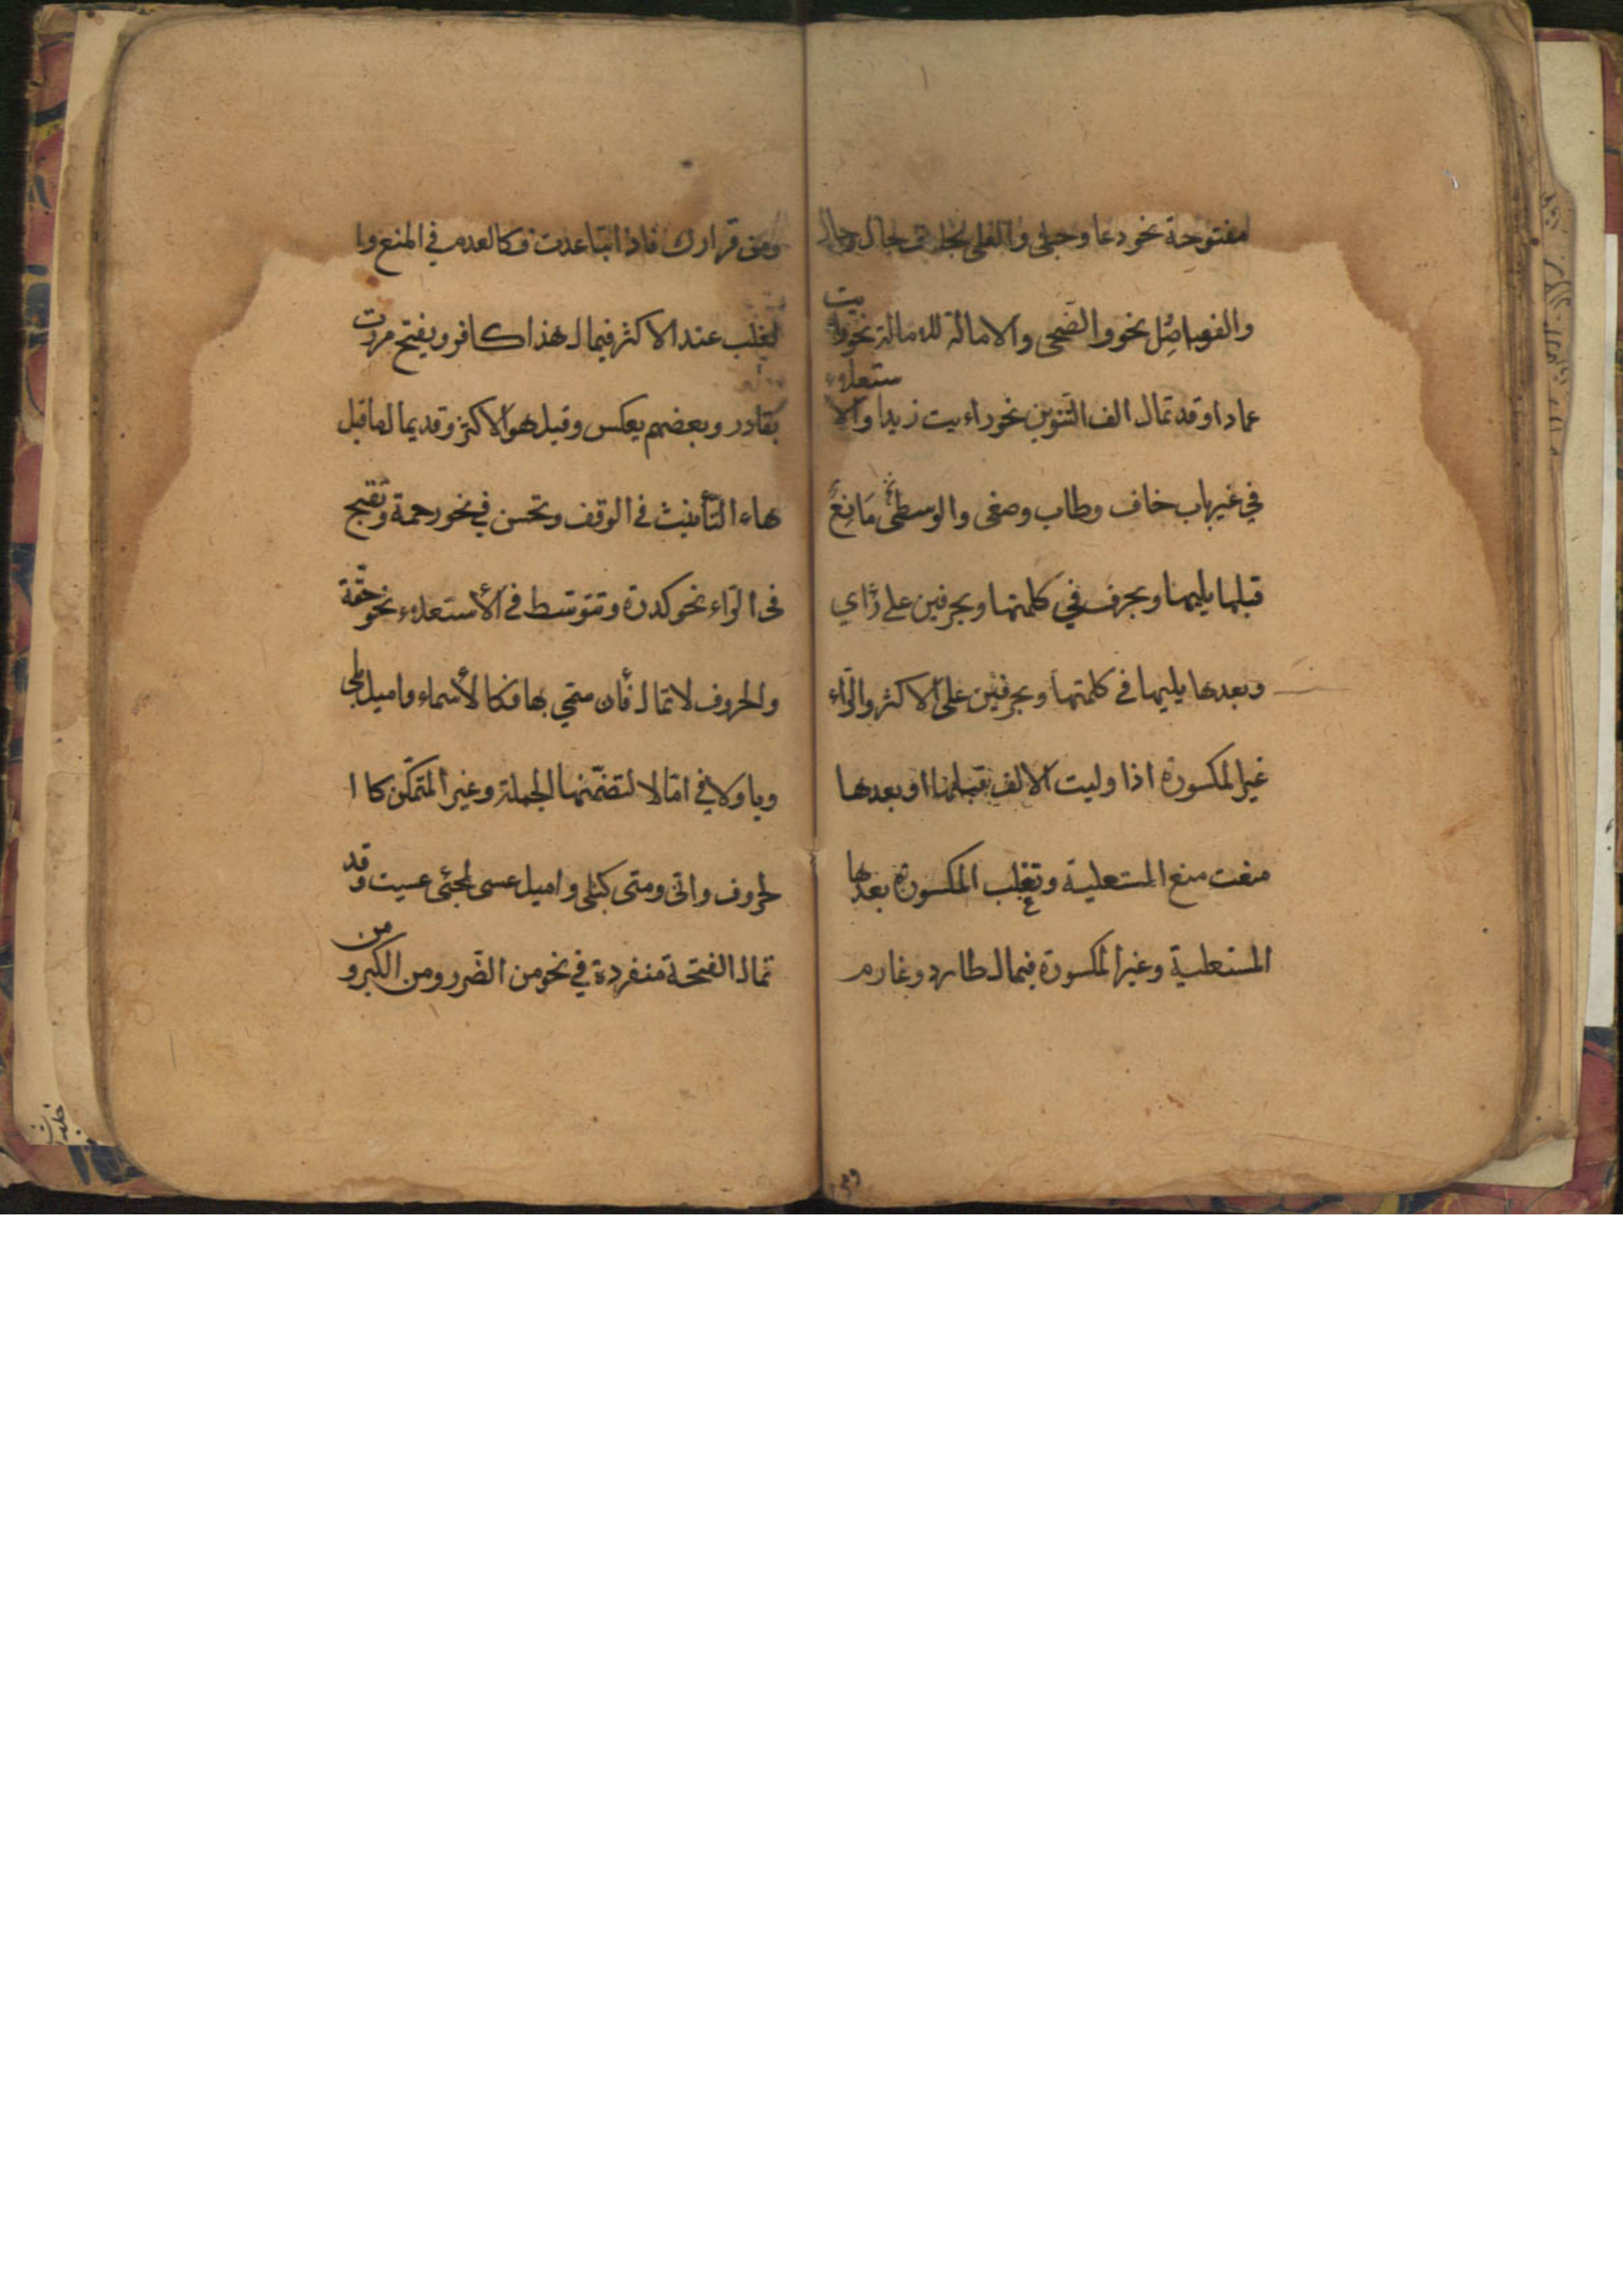 مفتوحة نحو دعا وحبلى والعلى بخلاف جال وحال
والفواصل نحو والضحى والامالة للامالة نحو رايت
عمادا وقد تمال الف التنوين نحو رايت زيدا والاستعلاء
في غير باب خاف وطاب وصغى والوسطى مانع
قبلها يليها وبحرف في كلمتها وبحرفين على رأي
وبعدها يليها في كلمتها وبحرفين على الاكثر والراء
غير المكسورة اذا وليت الالف قبلها او بعدها
منعت منع المستعلية وتغلب المكسورة بعدها
المستعلية وغير المكسورة فيمال طارد وغارم
ومن قرارك فاذا تباعدت فكالعدم في المنع وا
لغلب عند الاكثر فيمال هذا كافر ويفتح مررت
بقادر وبعضهم يعكس وقيل هو الاكثر وقد يمال ما قبل
هاء التأنيث في الوقف وتحسن في نحو رحمة وتقبح
فى الراء نحو كدرة وتتوسط في الأستعلاء نحو حقة
والحروف لا تمال فأن سمّي بها فكا لأسماء واميل بلى
ويا ولا في امّا لا لتضمّنها الجملة وغير المتمكّن كا ا
لحروف وانّى ومتى كبلى واميل عسى لمجئى عسيت وقد
تمال الفتحة منفردة في نحو من الضّرر ومن الكبر و من